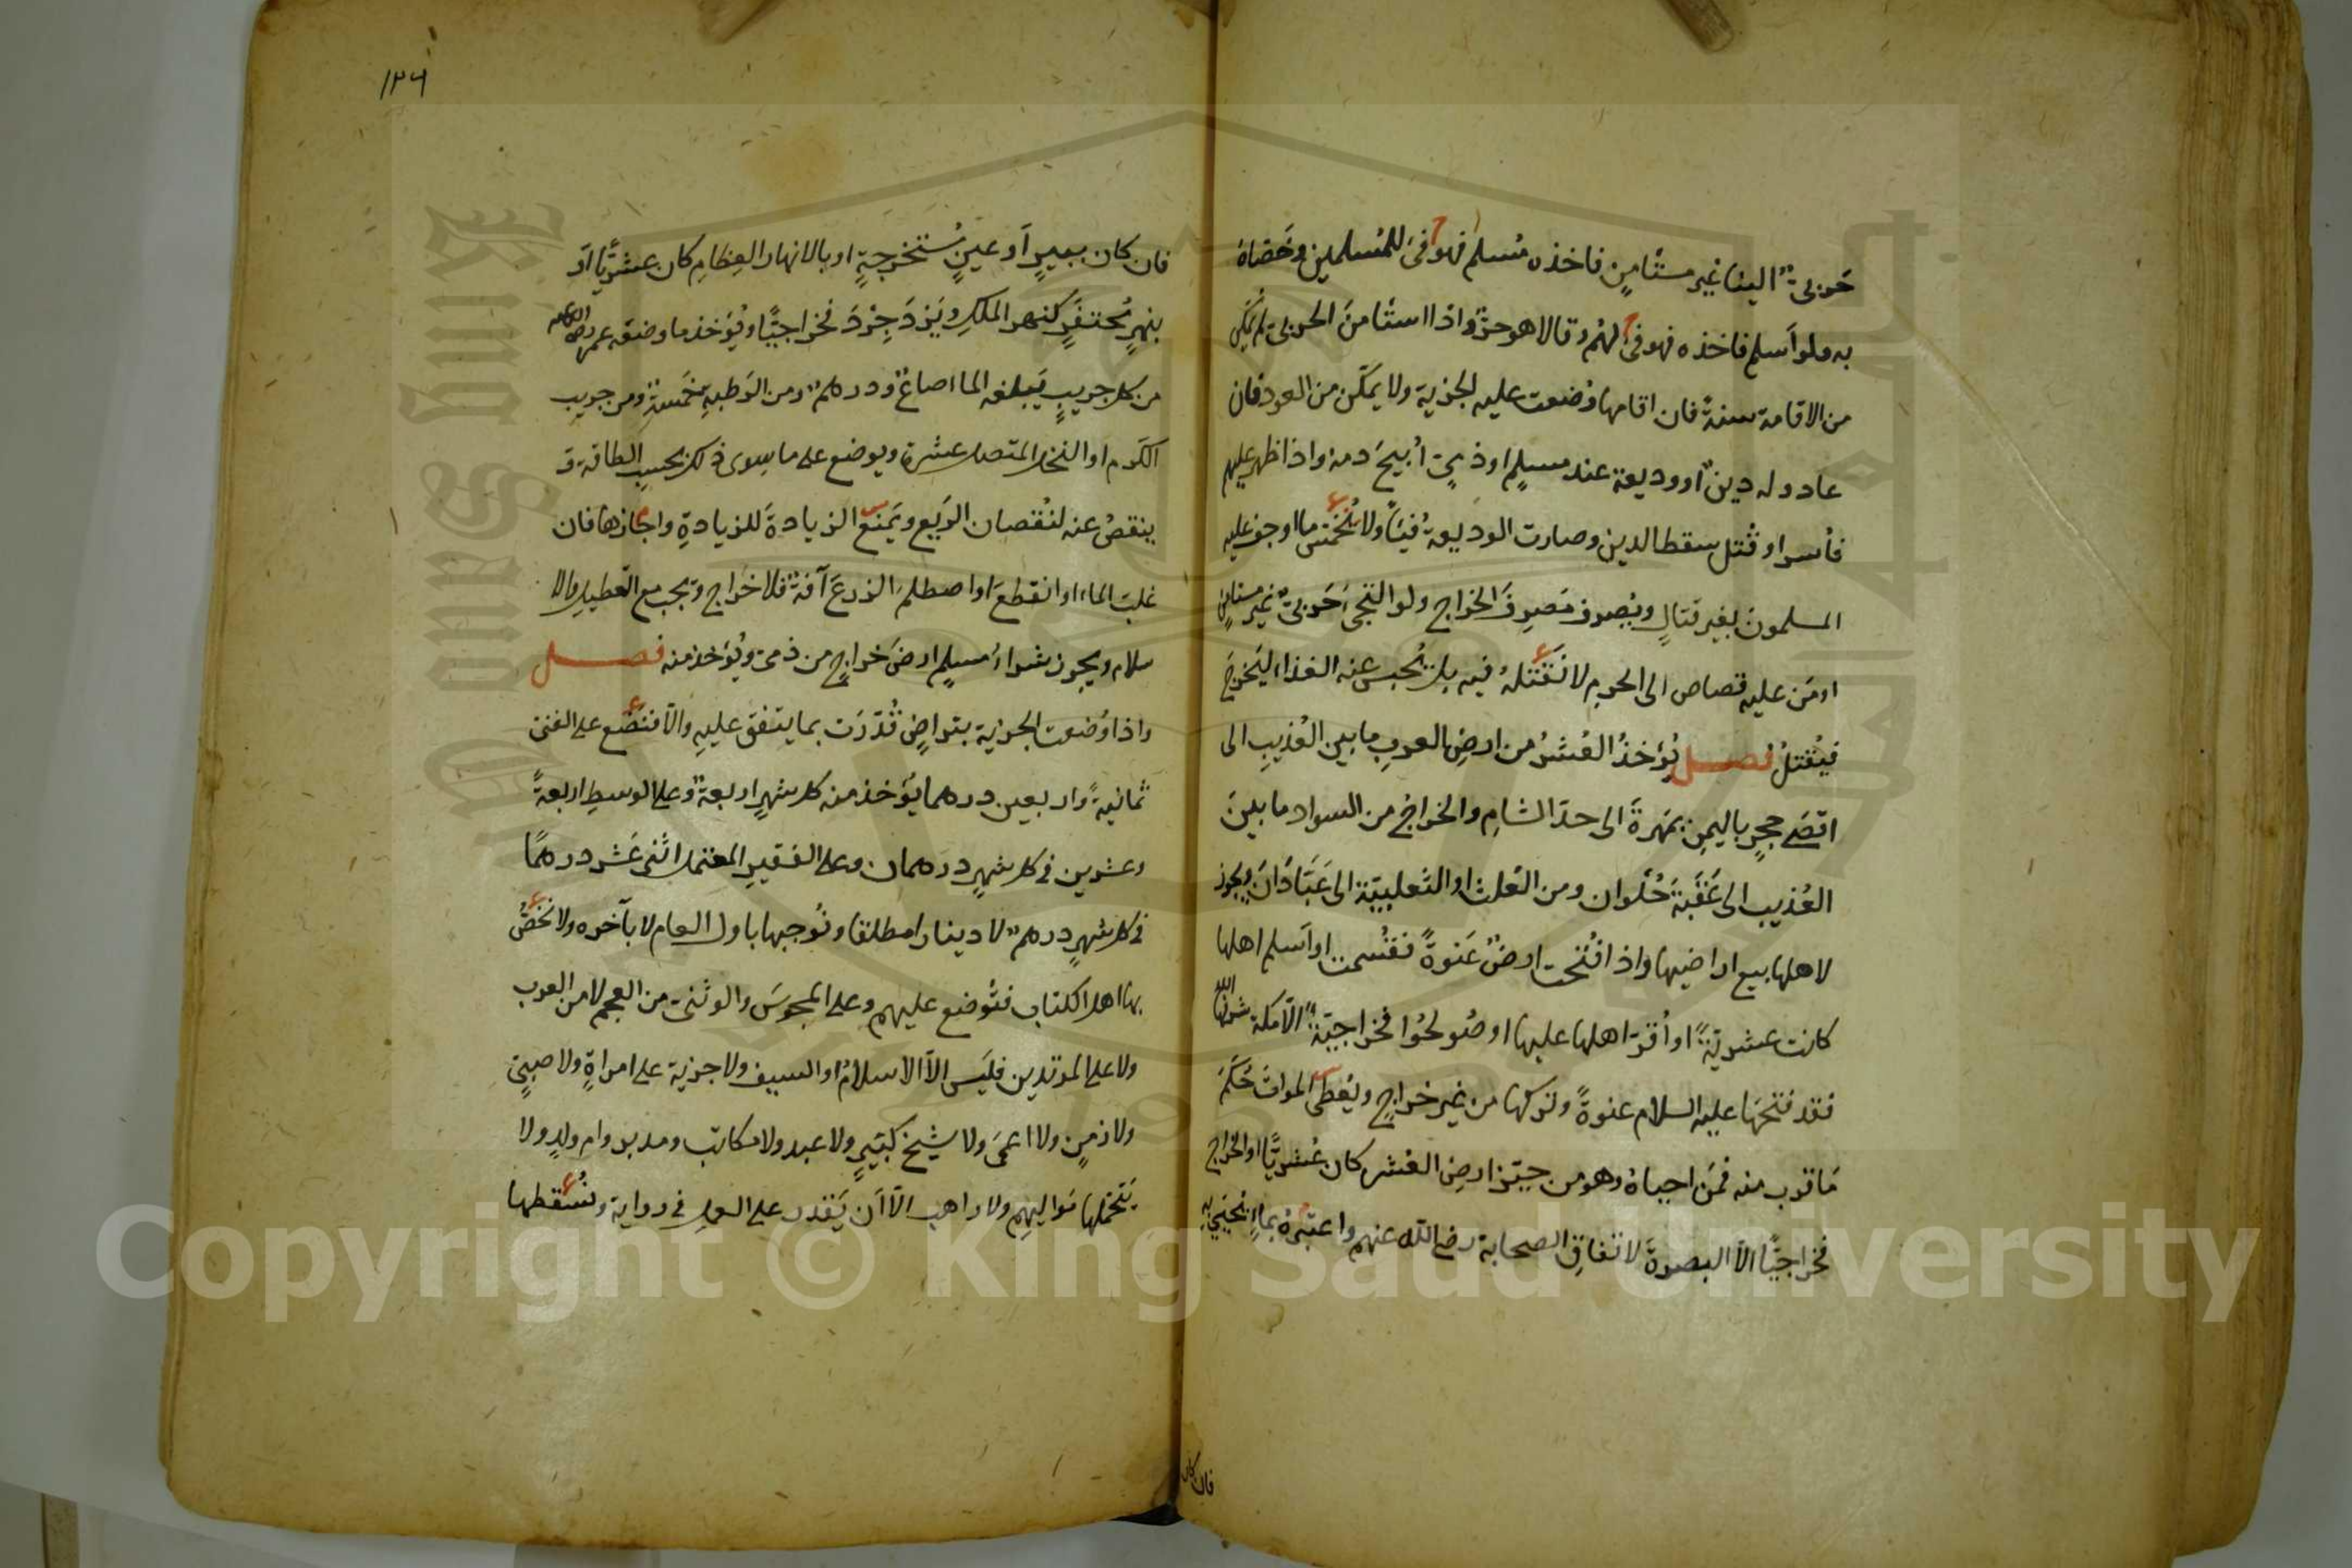 حَربيٌّ الينا غير مستأمِنٍ فاخذه مُسلم فهو فئ للمُسلمين وخَصّاهُ
به ولو اَسلم فاخذه فهو فئ لهُم وقالا هو حرٌّ واذا استأمنَ الحربي لم يُمكَّن
من الاقامة سنةً فان اقامها وُضعت عليه الجزية ولا يمكّن من العود فان
عاد وله دينٌ او وديعة عند مسلمٍ او ذميّ اُبيحَ دمه واذا ظهر عليهم
فأسر او قُتل سقط الدين وصارت الوديعةُ فيئاً ولا نُخمّس ما اوجف عليه
المسلمونَ بغير قتالٍ ويُصرف مَصرِفَ الخراج ولو التجى حَربيّ غيرُ مستامِنٍ
او مَن عليه قصاص الى الحرم لا نَقتلُهُ فيه بل يُحبس عنه الغذاء ليَخرجَ
فيُقتلُ فصل يُؤخذُ العُشرُ من ارضِ العربِ ما بين العُذيبِ الى
اقصَى حجرٍ باليمنِ بمَهرةَ الى حدّ الشامِ والخراجُ من السواد ما بينَ
العُذيب الى عَقَبَةَ حُلوان ومن العَلث او الثعلبيّة الى عَبّادَان ويجوز
لاهلها بيع اراضيها واذا فُتحت ارضٌ عَنوةً فقُسمت او اَسلم اهلها
كانت عشريّةً او اُقرّ اهلها عليها او صُولحُوا فخراجيّةً الّا مكة شرفها الله
فقد فتحَها عليه السلام عنوةً وتركها من غير خراجٍ ويُعطى المواتَ حُكمَ
مَا قرب منه فمَن احياهُ وهو من حيّز ارضِ العُشر كان عُشريًّا او الخراج
فخراجيًّا الّا البصرةَ لاتفاقِ الصحابة رضي الله عنهم واعتبَرهُ بماءٍ يُحيى به
فان كان
١٢٦
فان كان ببيرٍ اَو عينٍ مُستخرجةٍ او بالانهار العِظامِ كان عشريًّا اَو
بنهرٍ مُحتفَرٍ كنهر الملكِ ويَزدَجِرْدَ فخراجيًّا ويُؤخذ ما وضعَه عمر رضي الله عنه
من كل جريبٍ يَبلغه الماء صاعٌ ودرهمٌ ومن الرَطبةِ خَمسةٌ ومن جريبِ
الكَرم او النخل المتصل عشرة ويوضع على ما سِوى ذلك بحسبِ الطاقة و
ينقصُ عنه لنُقصان الرَيع ويَمنَع الزيادةَ للزيادةِ واجازها فان
غلبَ الماء او انقطعَ او اصطلم الزرعَ آفةٌ فلا خراج ويجب مع التعطيل والا
سلام ويجوز شراءُ مسلمٍ ارضَ خراجٍ من ذمى ويُؤخذ منه فصل
واذا وُضعت الجزية بتراضٍ قُدّرَت بما يتفق عليهِ والّا فنضَع على الغنى
ثمانيةً واربعين درهما يُؤخذ منه كل شهرٍ اربعةٌ وعلى الوسطِ اربعةً
وعشرين في كل شهرٍ درهمان وعلى الفقيرِ المعتمل اثنى عَشر درهمًا
في كل شهرٍ درهمٌ لا دينارا مطلقا ونُوجبها باول العام لا بآخره ولا نخصُّ
بها اهل الكتاب فتُوضع عليهم وعلى المجوسَ والوثنى من العجم لا من العرب
ولا على المرتدين فليَس الاّ الاسلامُ او السيف ولا جزية على امراةٍ ولا صبيّ
ولا زمِنٍ ولا اعمَى ولا شيخ كبيرٍ ولا عبد ولا مكاتب ومدبر وام ولدٍ ولا
يَتحمّلها مَواليهم ولا راهب الّا اَن يَقدر على العمل في رواية ونُسقطها
Copyright © King Saud University